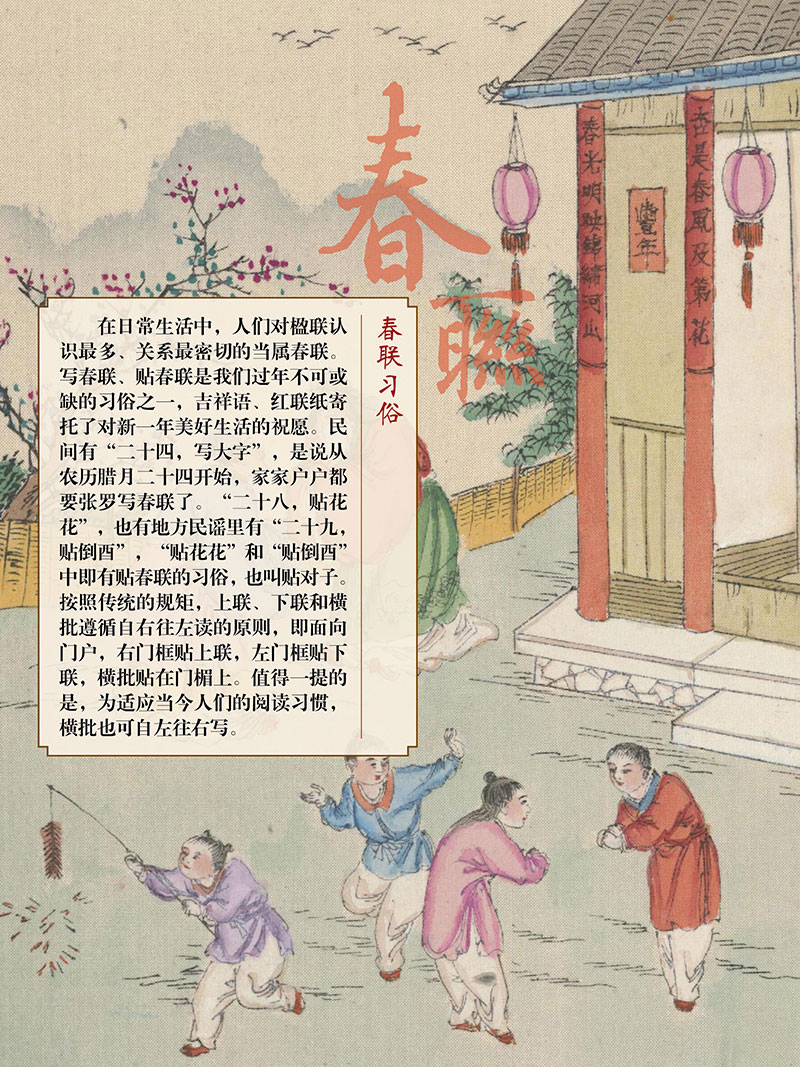 春
聯
杏是春風及第花
春光明映錦繡河山
年
春联习俗
在日常生活中，人们对楹联认
识最多、关系最密切的当属春联。
写春联、贴春联是我们过年不可或
缺的习俗之一，吉祥语、红联纸寄
托了对新一年美好生活的祝愿。民
间有“二十四，写大字”，是说从
农历腊月二十四开始，家家户户都
要张罗写春联了。“二十八，贴花
花”，也有地方民谣里有“二十九，
贴倒酉”，“贴花花”和“贴倒酉”
中即有贴春联的习俗，也叫贴对子。
按照传统的规矩，上联、下联和横
批遵循自右往左读的原则，即面向
门户，右门框贴上联，左门框贴下
联，横批贴在门楣上。值得一提的
是，为适应当今人们的阅读习惯，
横批也可自左往右写。